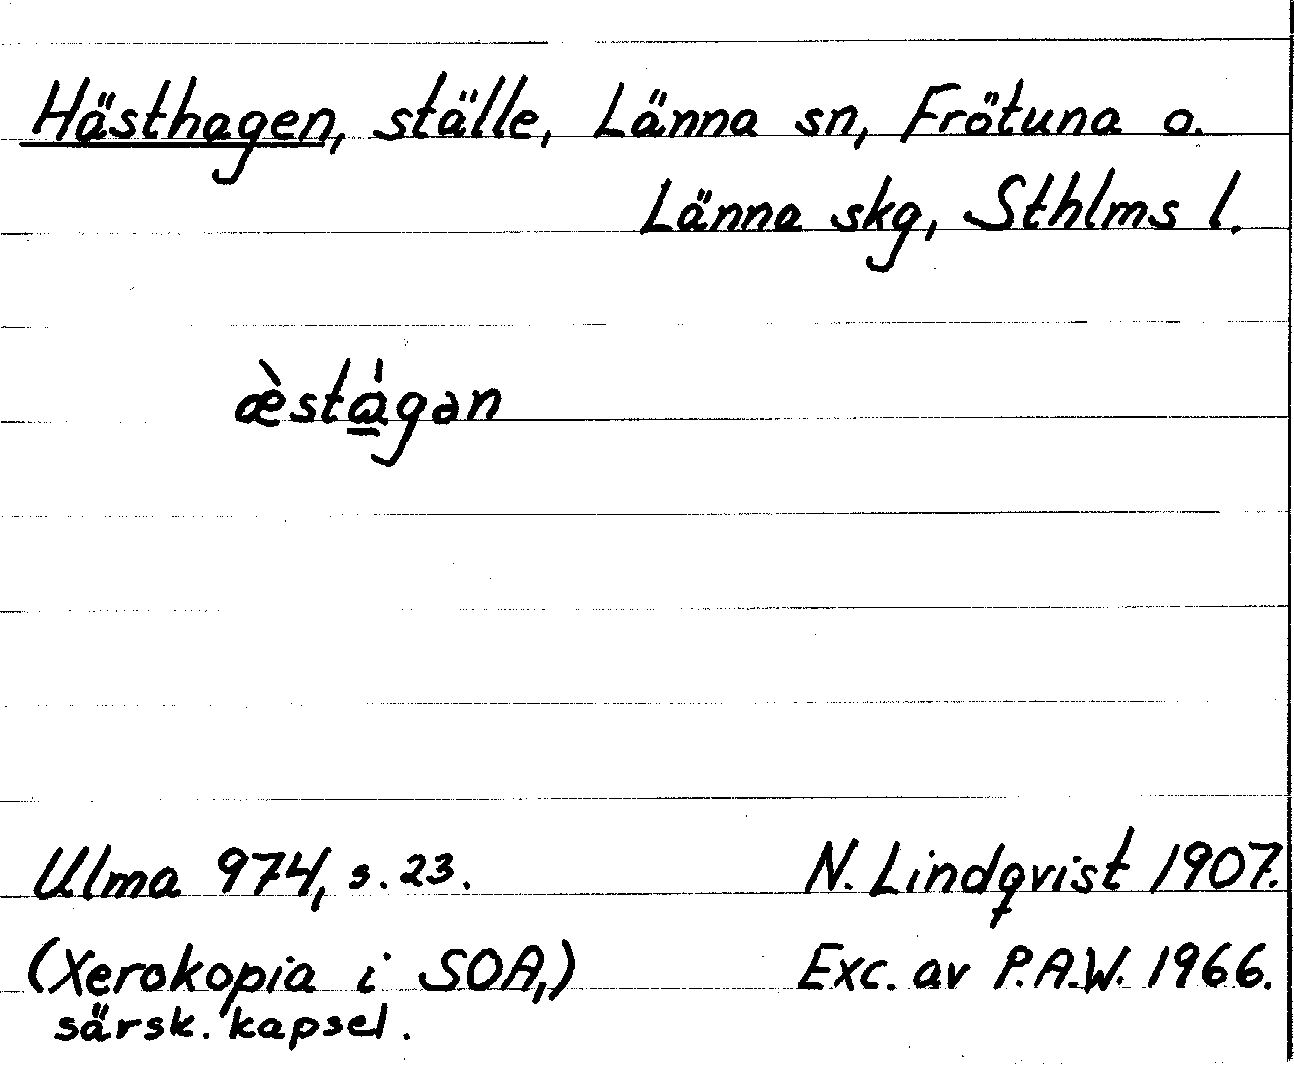 Hästhagen, ställe, Länna sn, Frötuna o.
Länna skg, Sthlms l.
æ̀sta̱̍gən
Ulma 974, s. 23.
N. Lindqvist 1907.
(Xerokopia i SOA,)
särsk. kapsel.
Exc. av P.A.W. 1966.